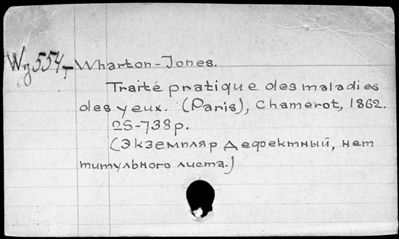 Wy554-Wharton-Jones.
Traité pratique des maladies
des yeux. (Paris), Chamerot, 1862.
25-738p.
(Экземпляр дефектный, нет
титульного листа.)